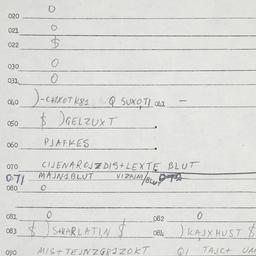 020 0
021 0
022 $
030 0
031 0
040 )-CHAXOTK81 Q SUXOTI 041 -
050 $ )GELZUXT
060 PJAFKES
070 CIJENAROJZDIS+LEXTE BLUT
071 MAJN1BLUT
080 0
081 0 082 0
083 $ )S+ARLATIN $ 084 )KAJXHUST $
090 MIS+TEJNZG81ZOKT QI TAJC+